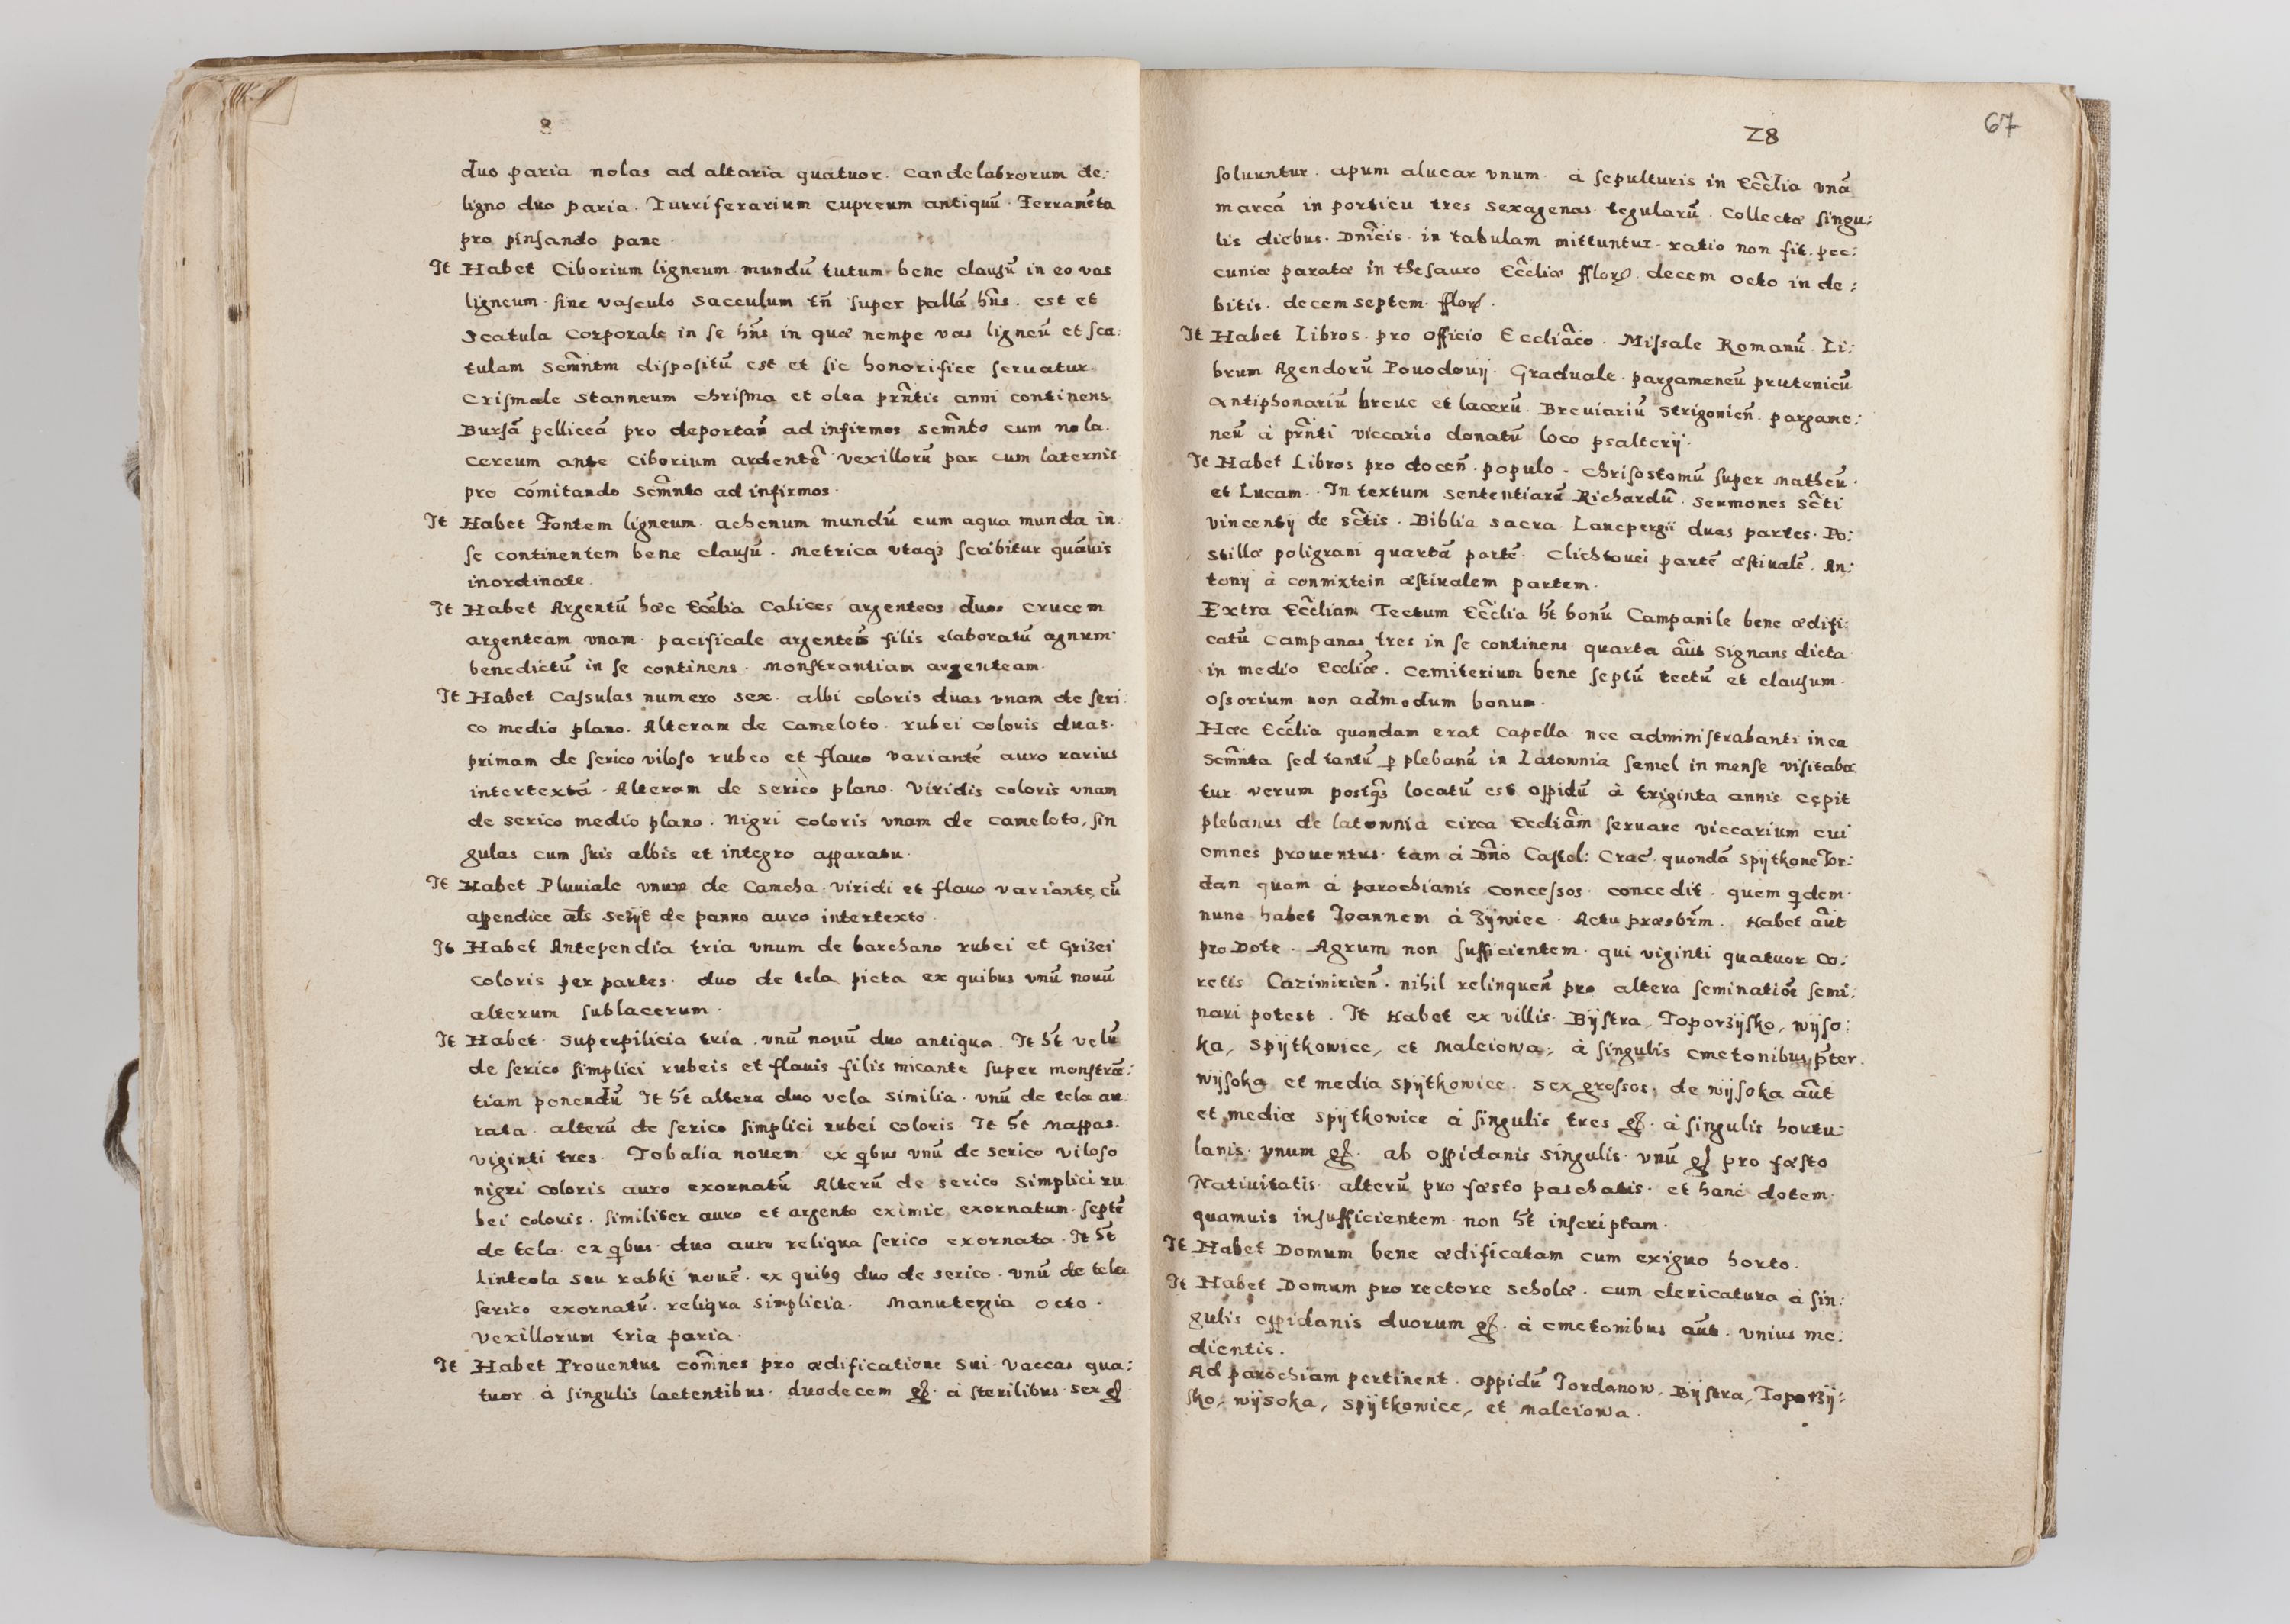 8
duo paria nolas ad altaria quatuor. candelabrorum de:
ligno duo paria. Turriferarium cupreum antiquū. Ferramēta
pro pinsando pane.
It Habet Ciborium ligneum. mundū tutum. bene clausū in eo vas
ligneum sine vasculo sacculum tn̄ super pallā hñs. est et
Scatula Corporale in se hñs in qua nempe vas ligneū et sca:
tulam scm̃ntm dispositū est et sic honorifice seruatur.
Crismale stanneum chrisma et olea prñtis anni continens.
Bursā pelliceā pro deportan̄ ad infirmos scm̃nto cum nola.
cereum ante Ciborium ardentē vexillorū par cum laternis
pro cōmitando scm̃nto ad infirmos.
It Habet Fontem ligneum. achenum mundū cum aqua munda in
se continentem bene clausū. Metrica vtaqꝫ scribitur quāuis
inordinate.
It Habet Argentū hæc Ecc̃lia Calices argenteos duos crucem
argenteam vnam. pacificale argenteis filis elaboratū agnum
benedictū in se continens. Monstrantiam argenteam.
It Habet Cassulas numero sex. albi coloris duas vnam de seri:
co medio plano. Alteram de Cameloto. rubei coloris duas.
primam de serico viloso rubeo et flauo variantē auro rarius
intertextā. Alteram de serico plano. Viridis coloris vnam
de serico medio plano. Nigri coloris vnam de cameloto, sin
gulas cum suis albis et integro apparatu.
It Habet Pluuiale vnum de Camcha. viridi et flauo variante, cū
appendice als̄ Sczijt de panno auro intertexto.
It Habet Antependia tria vnum de barchano rubei et Grizei
coloris per partes. duo de tela picta ex quibus vnū nouū
alterum sublacerum.
It Habet Superpilicia tria. vnū nouū duo antiqua. It ht̄ velū
de serico simplici rubeis et flauis filis micante super monstrā:
tiam ponendū It ht̄ altera duo vela similia. vnū de tela au:
rata. alterū de serico simplici rubei coloris. It ht̄ Mappas.
viginti tres. Tobalia nouem ex qbus vnū de serico viloso
nigri coloris auro exornatū Alterū de serico simplici ru
bei coloris. similiter auro et argento eximie exornatum. septē
de tela. ex qbus. duo auro reliqua serico exornata. It ht̄
Linteola seu rabki nouē. ex quibꝯ duo de serico. vnū de tela
serico exornatū. reliqua simplicia. Manutergia octo.
Vexillorum tria paria.
It Habet Prouentus com̄nes pro ædificatione sui. vaccas qua:
tuor à singulis lactentibus. duodecem gſ. à sterilibus. sex gſ.
28
67
soluuntur. apum aluear vnum. à sepulturis in Ecc̃lia vnā
marcā in porticu tres sexagenas tegularū. Collecta singu:
lis diebus. Dñicis. in tabulam mittuntur. ratio non fit. pec:
cuniæ paratæ in thesauro Ecc̃liæ fflorꝭ decem octo in de:
bitis. decem septem. fflorꝭ.
It Habet Libros. pro officio Eccliãco. Missale Romanū. Li:
brum Agendorū Pouodouij. Graduale. pargameneū prutenicū
Antiphonariū breue et lacerū. Breuiariū Strigonien̄. pargame:
neū à prñti viccario donatū loco psalterij.
It Habet Libros pro docen̄. populo. Chrisostomū super Matheū.
et Lucam. In textum sententiarū Richardū. sermones Sc̃ti
Vincentij de Sc̃tis. Biblia sacra. Lancpergii duas partes. Po:
stillæ poligrani quartā partē. Clichtouei partē æstiualē. An:
tonij à connixtein æstiualem partem.
Extra Ecc̃liam Tectum Ecc̃lia ht̄ bonū Campanile bene ædifi:
catū Campanas tres in se continens. quarta aūt signans dicta
in medio Eccliæ. Cemiterium bene septū tectū et clausum.
Ossorium non admodum bonum.
Hæc Ecc̃lia quondam erat Capella. nec administrabanti in ea
Scm̃nta sed tantū ꝑ plebanū in Latownia semel in mense visitaba:
tur. verum postqꝫ locatū est oppidū à triginta annis cępit
plebanus de latownia circa Eccliãm seruare viccarium cui
omnes prouentus. tam à Dño Castol: Crac̄. quondā Spijtkone Jor:
dan quam à parochianis concessos. concedit. quem qdem.
nunc habet Joannem à Zijwiec. Actu præsbr̄m. Habet aūt
pro Dote. Agrum non sufficientem. qui viginti quatuor Co:
retis Cazimirien̄. nihil relinquen̄ pro altera seminatiōe semi:
nari potest. It Habet ex villis. Bijstra, Toporzijsko, wijso:
ka, Spijtkowice, et Maleiowa, à singulis cmetonibus, p̄ter
Wijsoka et media Spijtkowice. sex grossos, de wijsoka aūt
et media Spijtkowice à singulis tres gſ. à singulis hortu:
lanis. vnum gſ. ab oppidanis singulis. vnū gſ pro fæsto
Natiuitatis. alterū pro fæsto paschatis. et hanc dotem.
quamuis insufficientem. non ht̄ inscriptam.
It Habet Domum bene ædificatam cum exiguo horto.
It Habet Domum pro rectore scholæ. cum clericatura à sin:
gulis oppidanis duorum gſ. à cmetonibus aūt. vnius me:
dientis.
Ad parochiam pertinent. oppidū Jordanow, Bijstra, Toporzij:
sko, wijsoka, Spijtkowice, et Maleiowa.